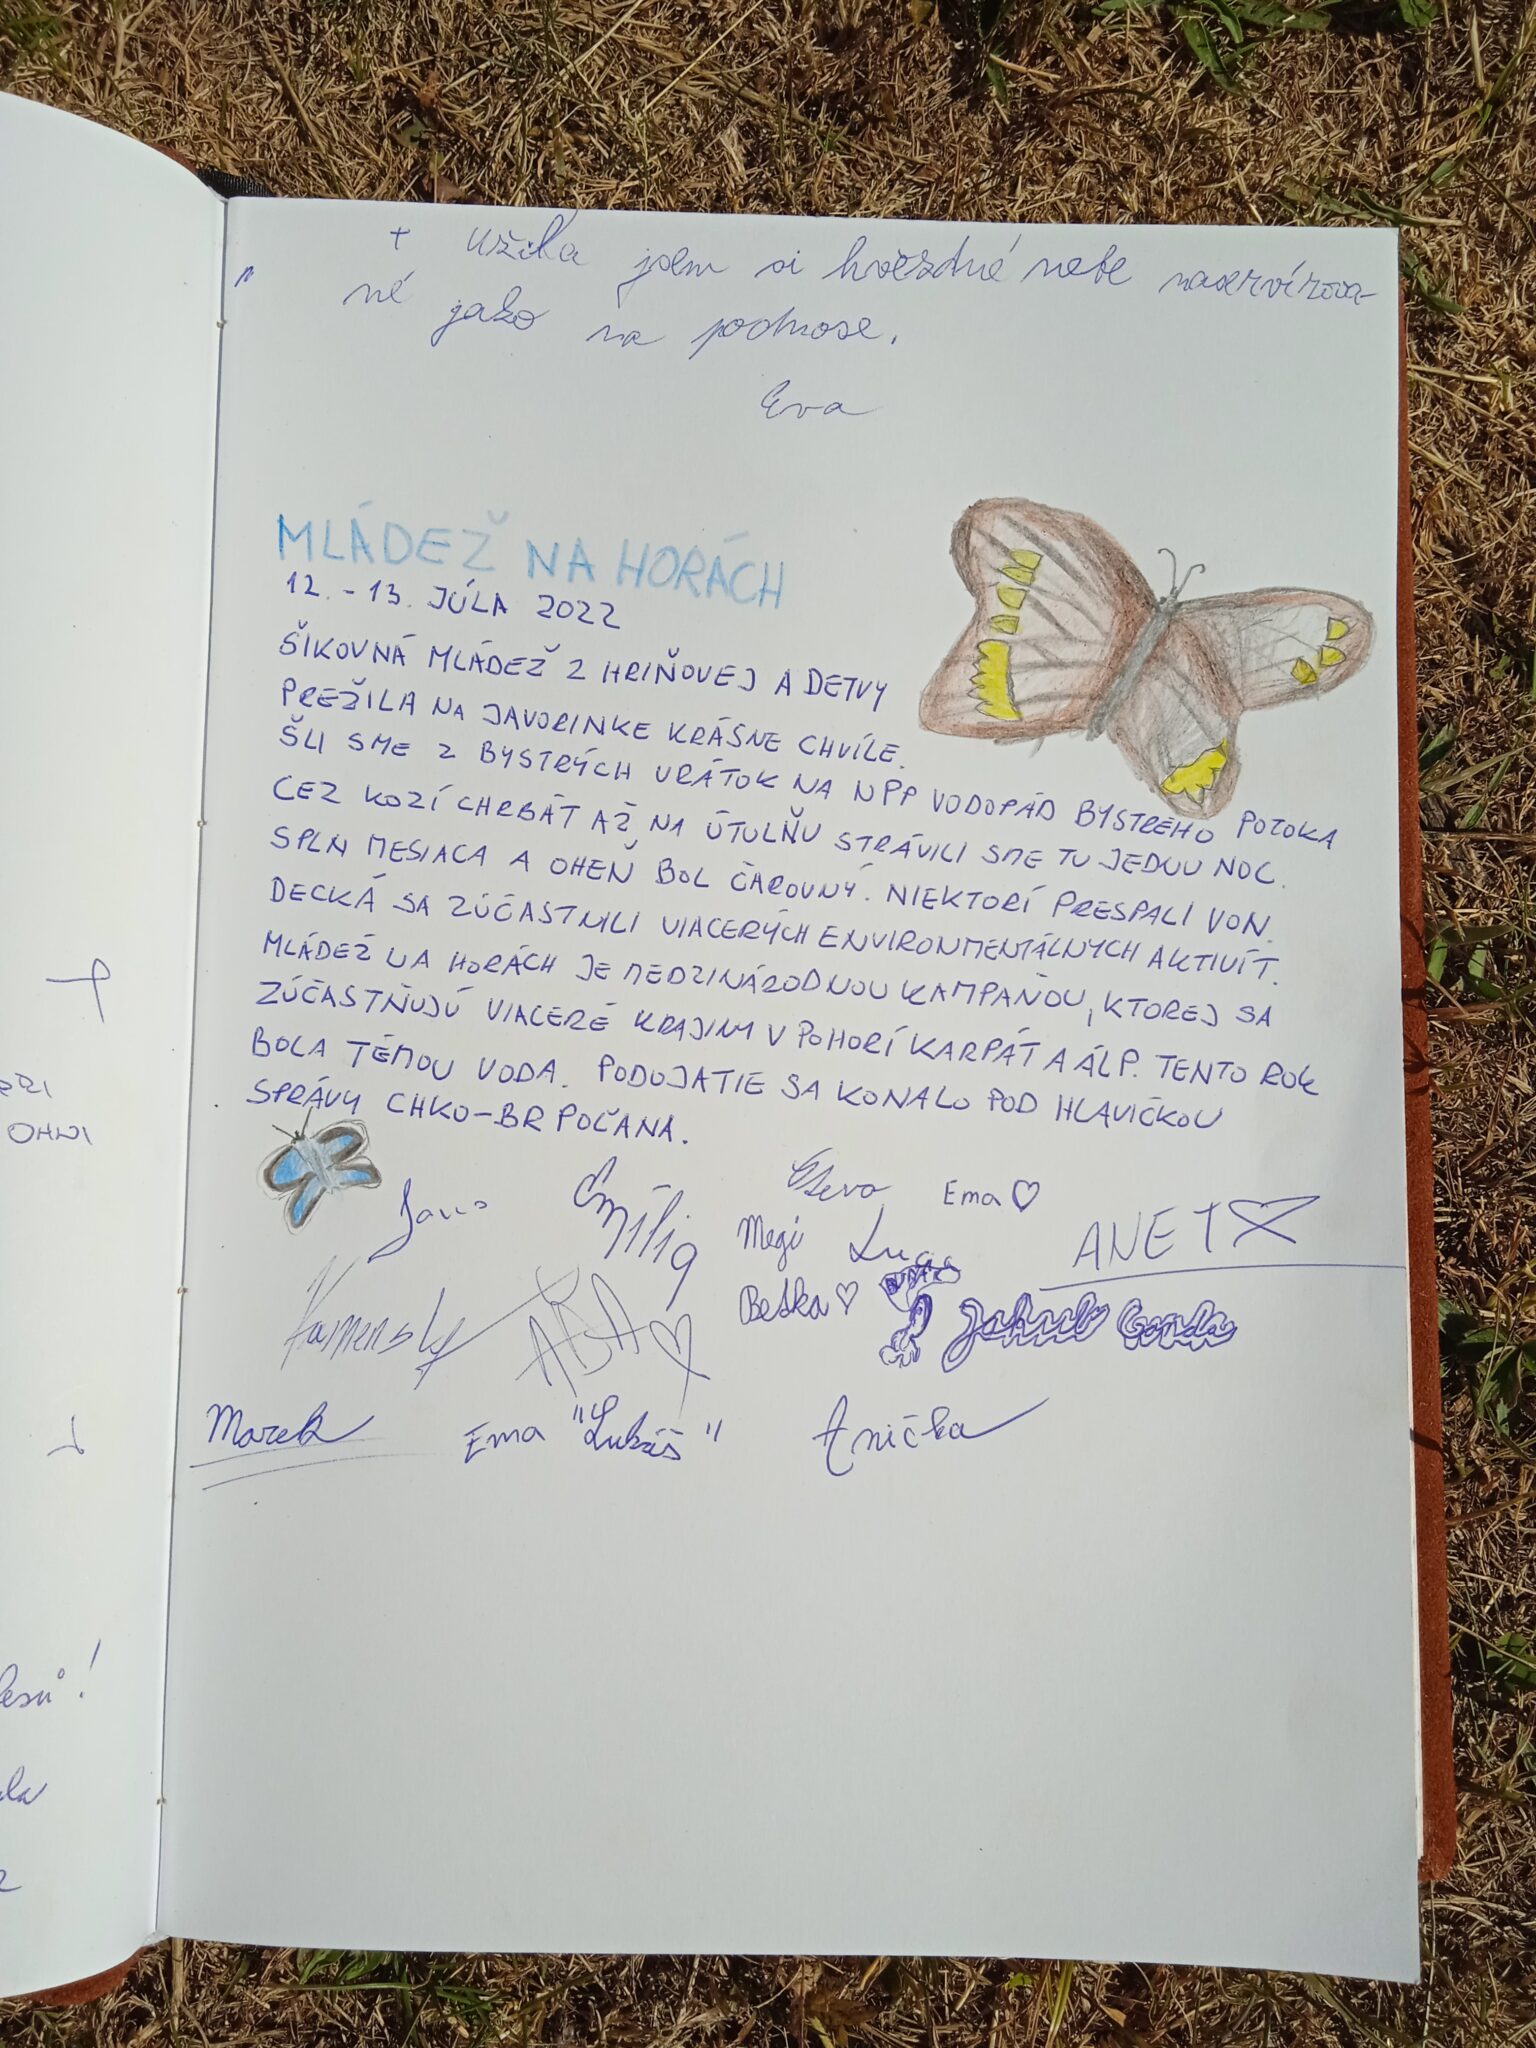 + užila jsem si hvězdné nebe naservírova-
né jako na podnose.
Eva
MLÁDEŽ NA HORÁCH
12. - 13. JÚLA 2022
ŠIKOVNÁ MLÁDEŽ Z HRIŇOVEJ A DETVY
PREŽILA NA JAVORINKE KRÁSNE CHVÍLE.
ŠLI SME Z BYSTRÝCH VRÁTOK NA NPP VODOPÁD BYSTRÉHO POTOKA
CEZ KOZÍ CHRBÁT AŽ NA ÚTULŇU STRÁVILI SME TU JEDNU NOC.
SPLN MESIACA A OHEŇ BOL ČAROVNÝ. NIEKTORÍ PRESPALI VON.
DECKÁ SA ZÚČASTNILI VIACERÝCH ENVIRONMENTÁLNYCH AKTIVÍT.
MLÁDEŽ NA HORÁCH JE MEDZINÁRODNOU KAMPAŇOU, KTOREJ SA
ZÚČASTŇUJÚ VIACERÉ KRAJINY V POHORÍ KARPÁT A ÁLP. TENTO ROK
BOLA TÉMOU VODA. PODUJATIE SA KONALO POD HLAVIČKOU
SPRÁVY CHKO-BR POĽANA.
Jano Emília Ema ♡
Megi Luca ANET
Kamensky ABA ♡ Betka ♡ Jakub Gonda
Marek Ema "Lukáš" Anička
OHNI